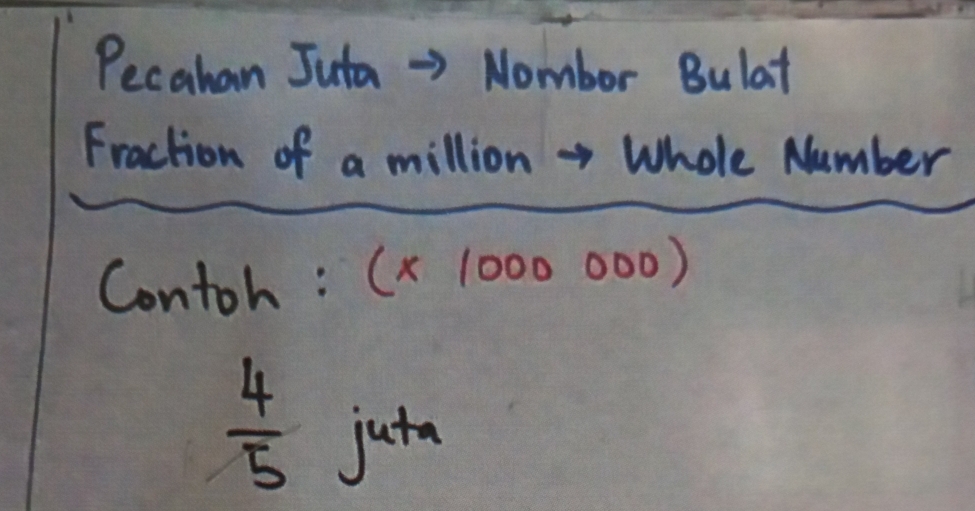 Pecahan Juta → Nombor Bulat
Fraction of a million → Whole Number
Contoh : (x 1000 000)
4/5 juta